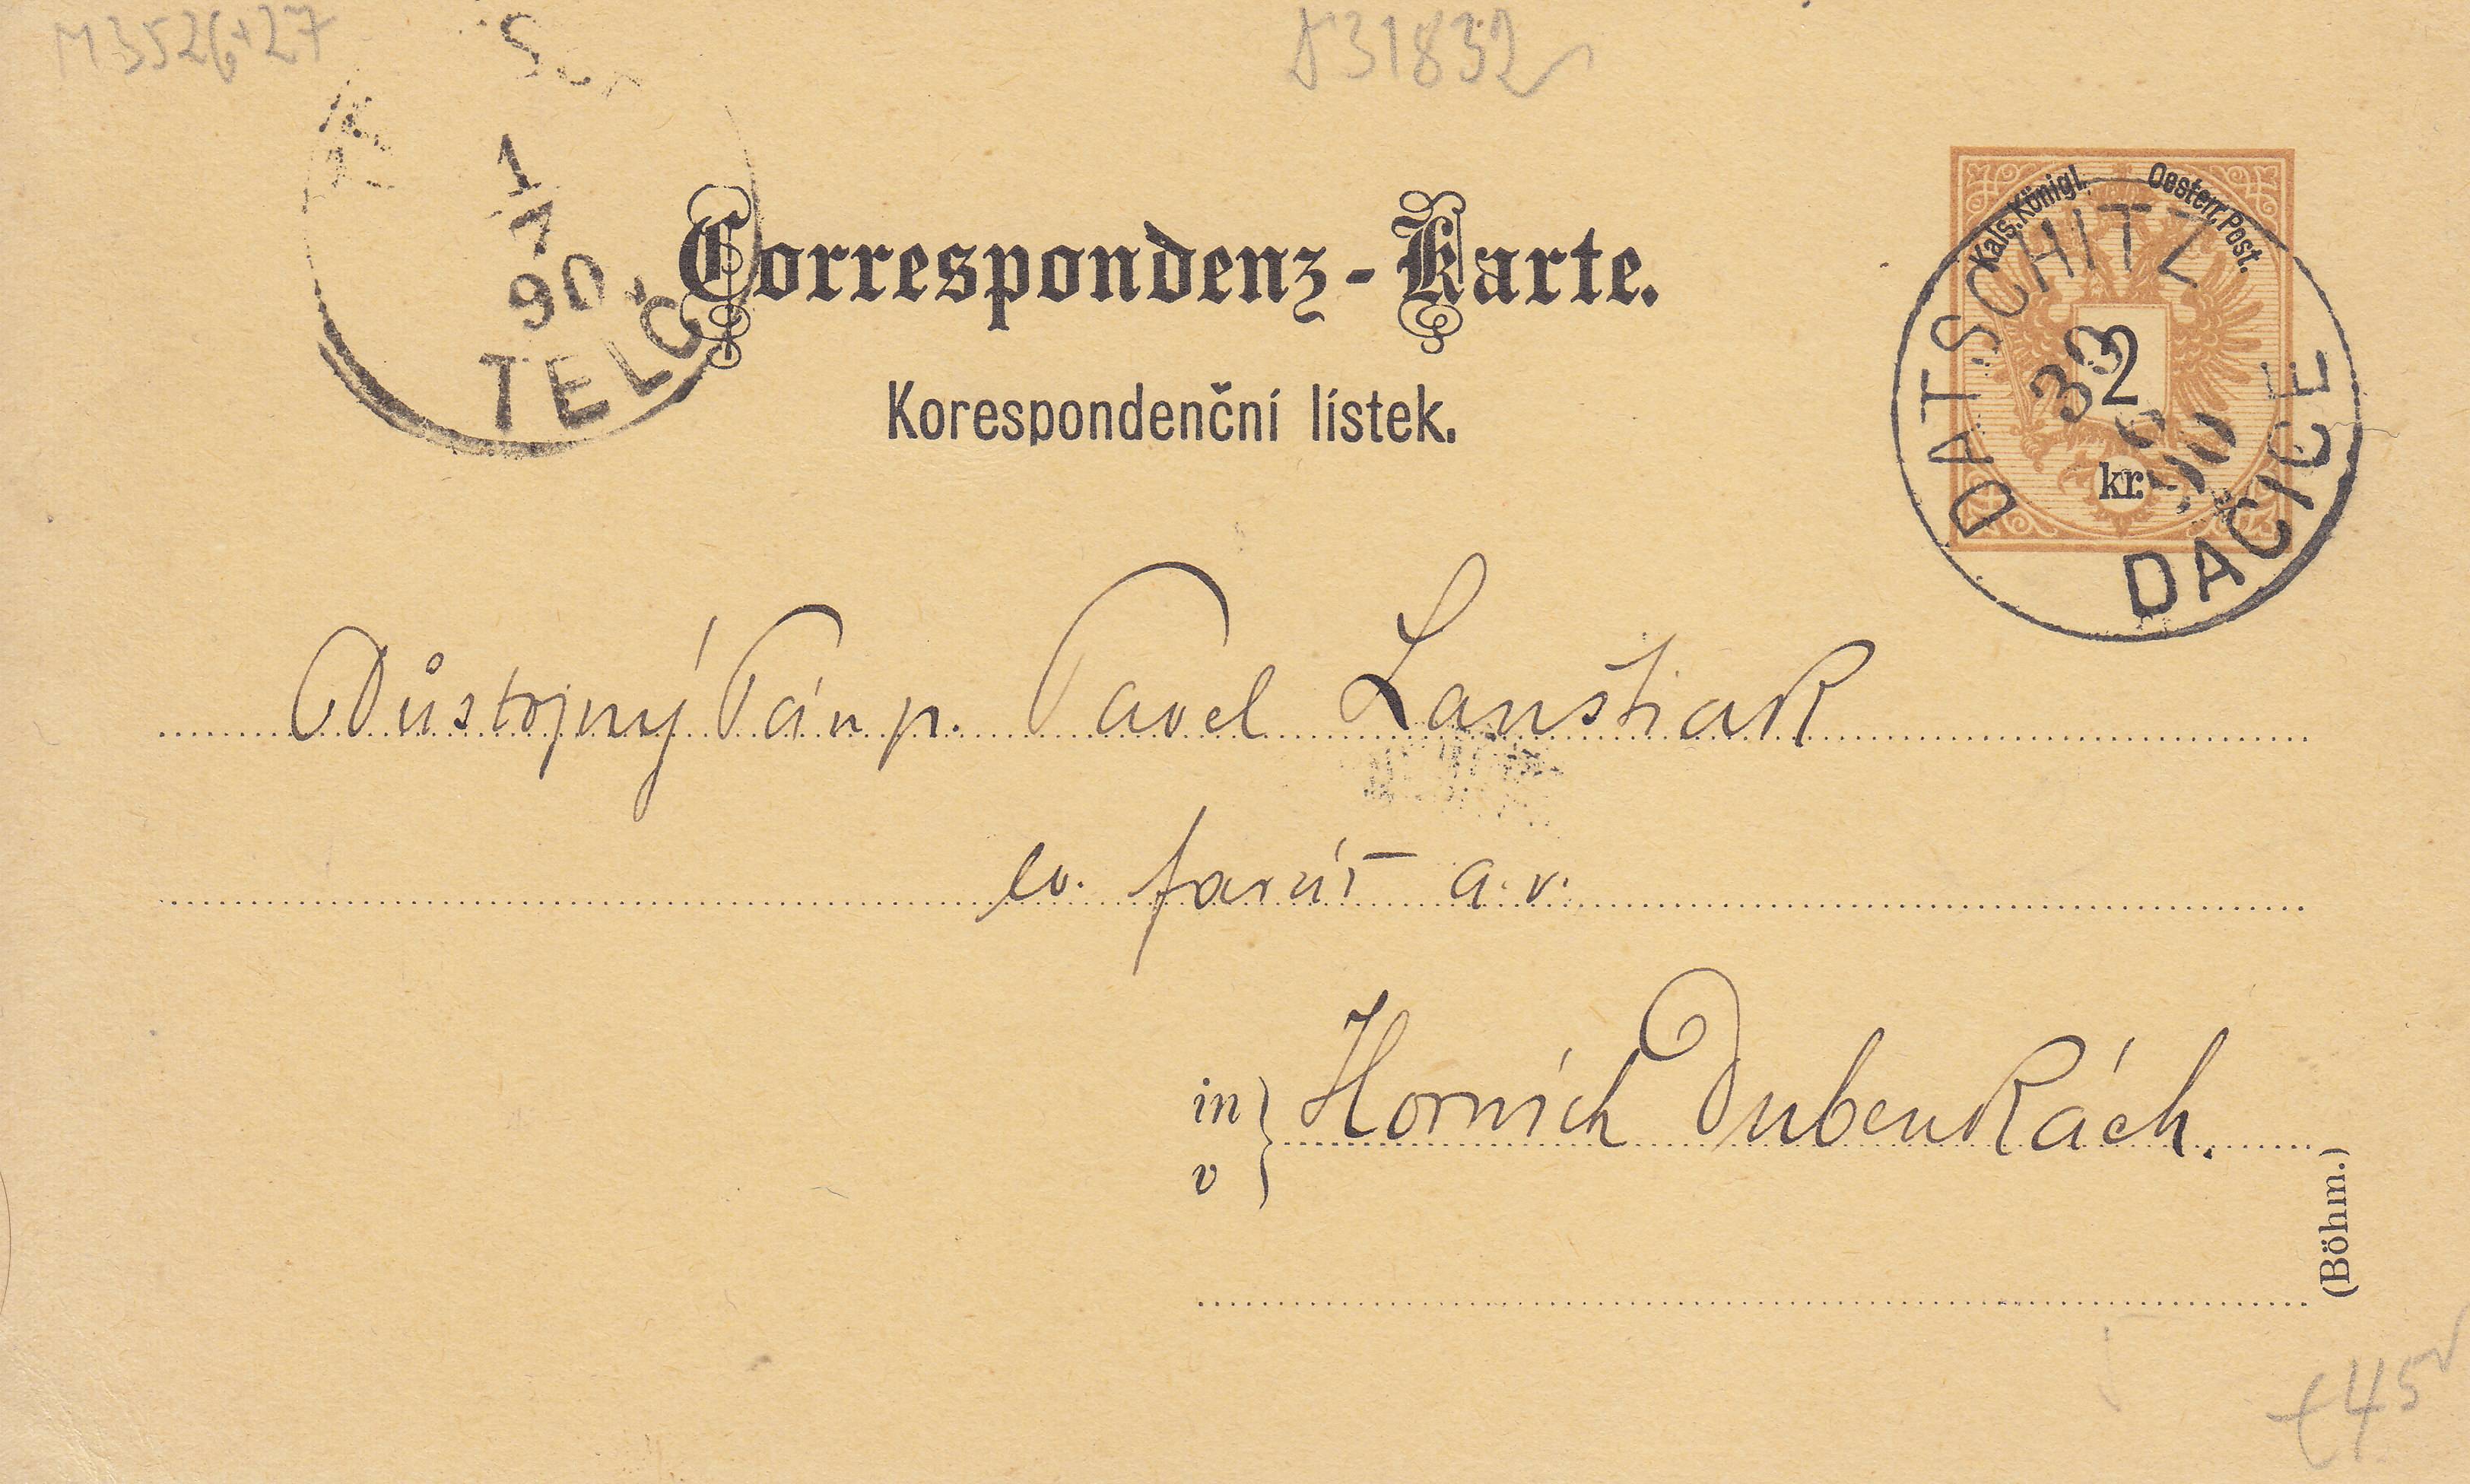 M3526+27
1
7
90
TELČ
Correspondenz-Karte.
Korespondenční lístek.
Kais. Königl. Oesterr. Post.
2
kr.
DATSCHITZ
30
6
90
DAČICE
Důstojný Pán p. Pavel Lanštiak
ev. farář a. v.
in
v
Horních Dubenkách.
(Böhm.)